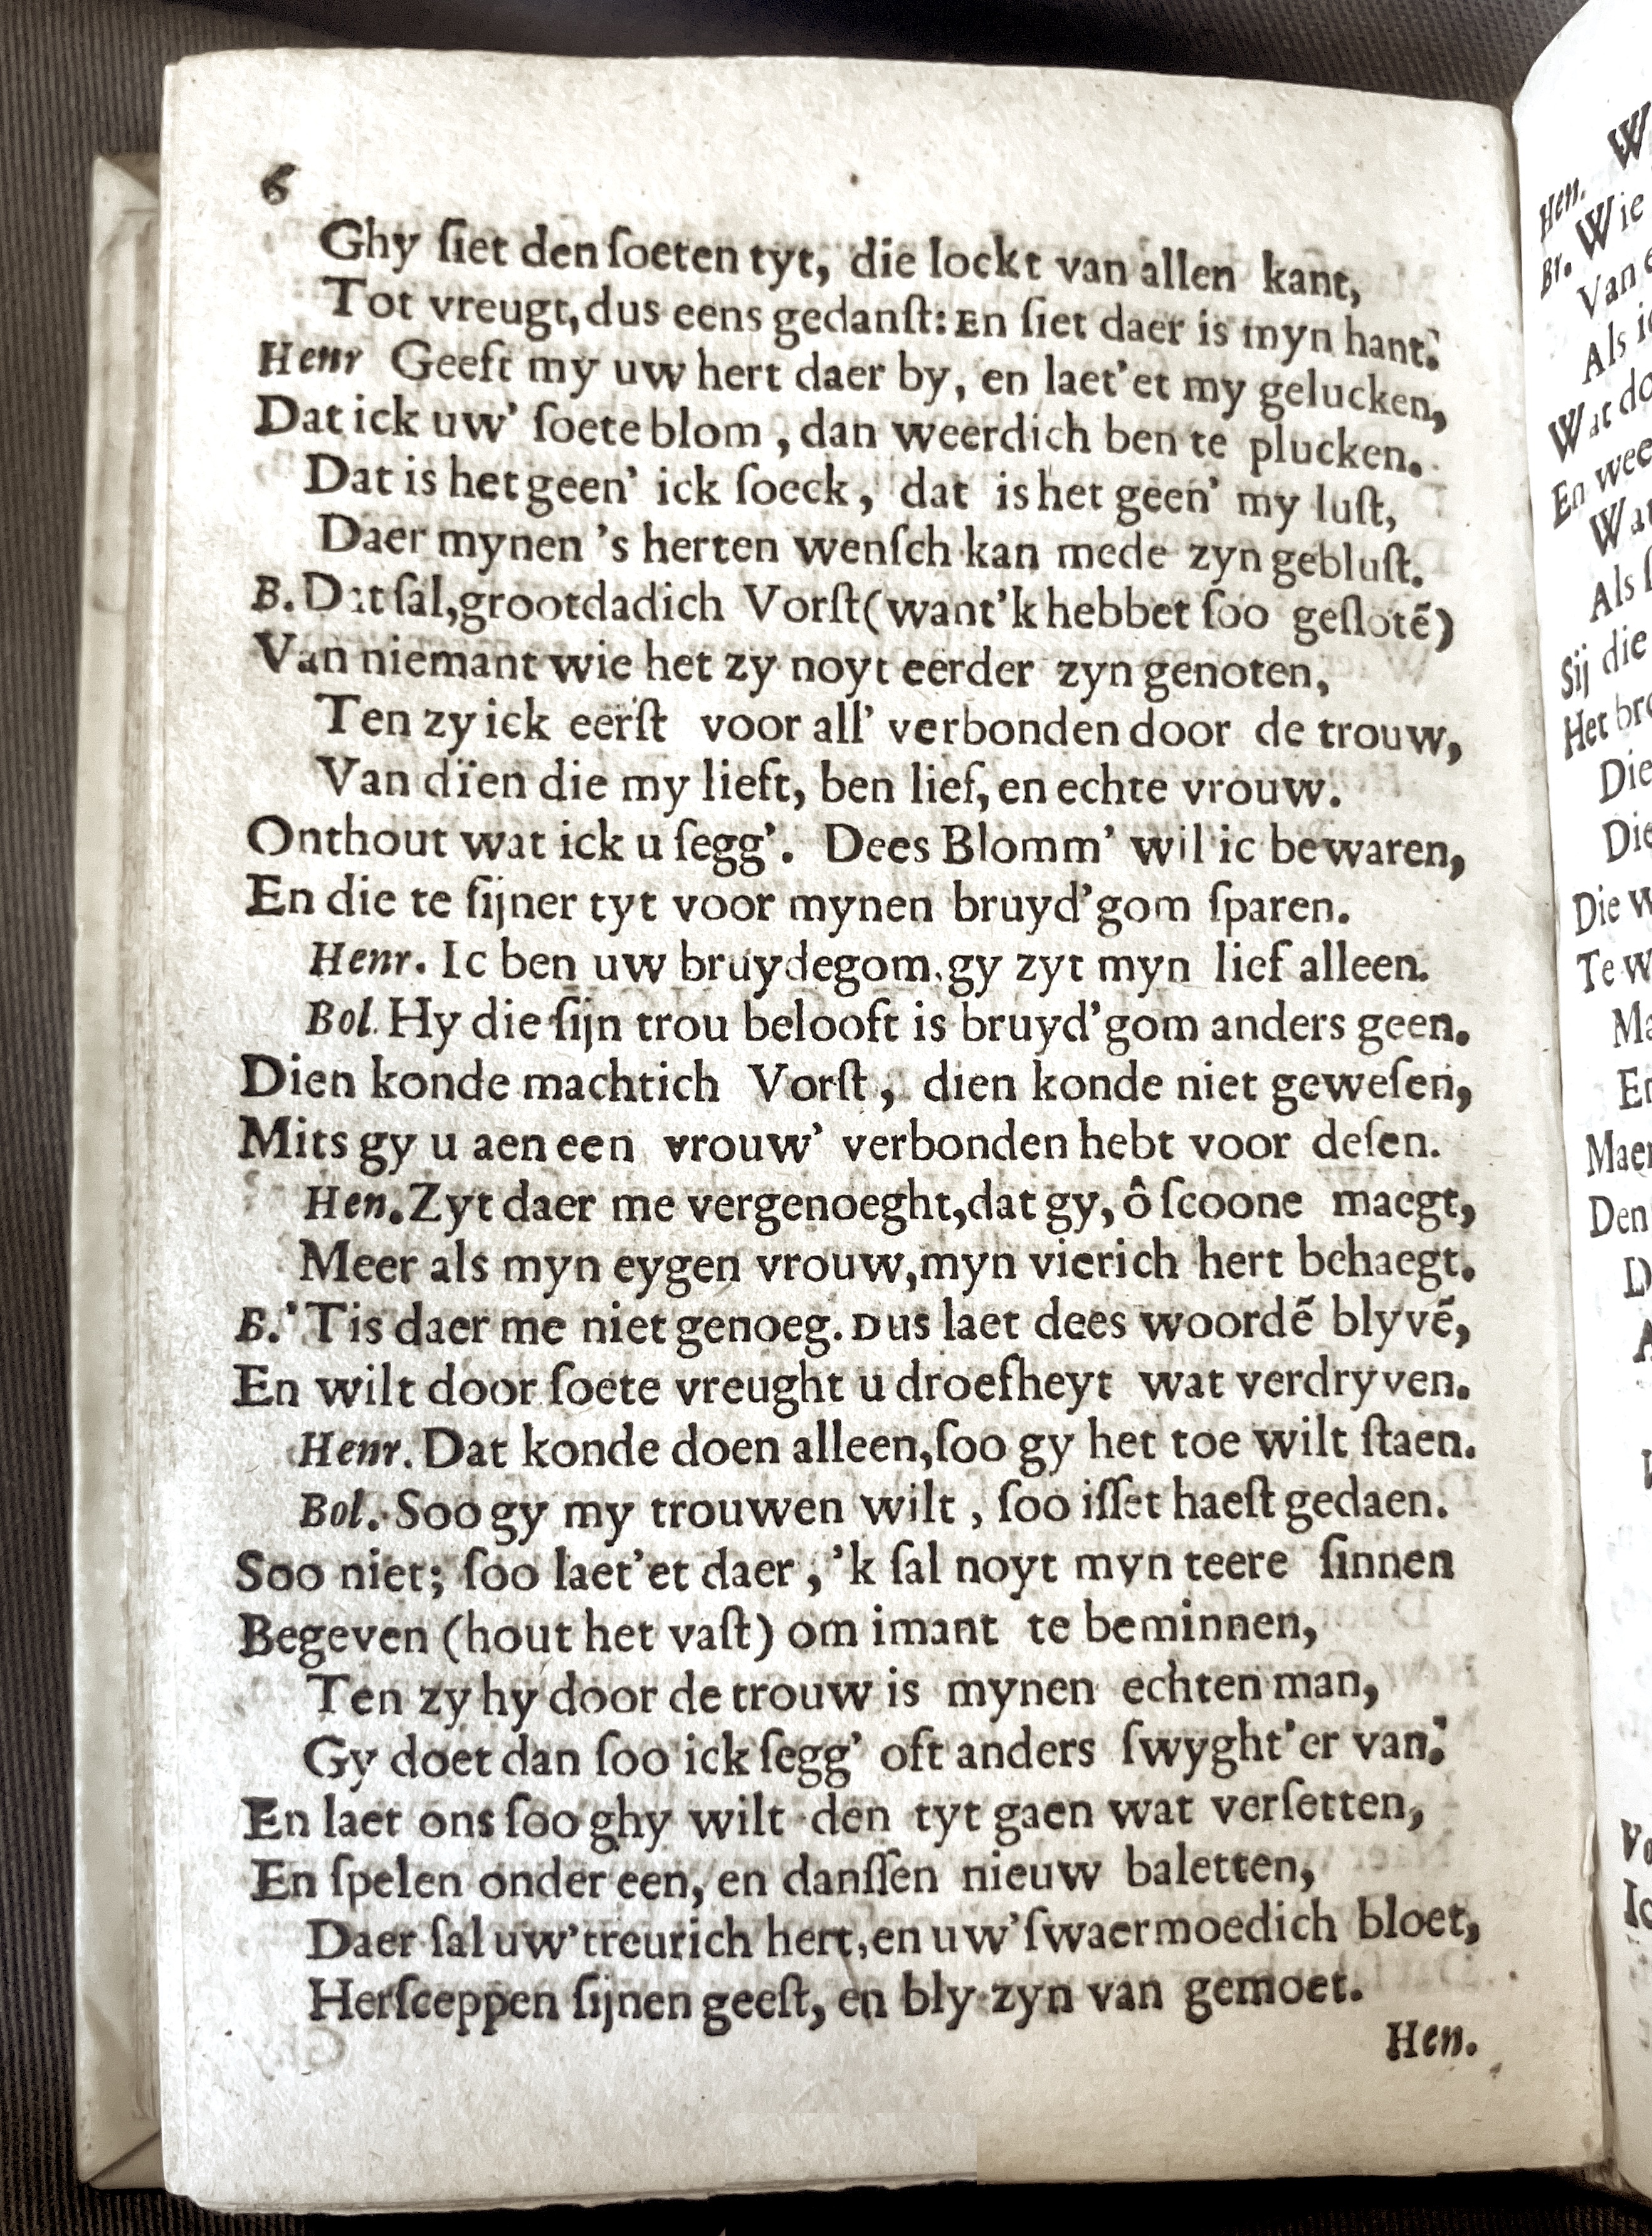 6
Ghy ſiet den ſoeten tyt, die lockt van allen kant,
Tot vreugt, dus eens gedanſt: En ſiet daer is myn hant.
Henr Geeft my uw hert daer by, en laet'et my gelucken,
Dat ick uw' ſoete blom, dan weerdich ben te plucken.
Dat is het geen' ick ſoeck, dat is het geen' my luſt,
Daer mynen 's herten wenſch kan mede zyn gebluſt.
B. Dat ſal, grootdadich Vorſt (want'k hebbet ſoo geſlotẽ)
Van niemant wie het zy noyt eerder zyn genoten,
Ten zy ick eerſt voor all' verbonden door de trouw,
Van dïen die my lieft, ben lief, en echte vrouw.
Onthout wat ick u ſegg'. Dees Blomm' wil ic bewaren,
En die te ſijner tyt voor mynen bruyd'gom ſparen.
Henr. Ic ben uw bruydegom. gy zyt myn lief alleen.
Bol. Hy die ſijn trou belooft is bruyd'gom anders geen.
Dien konde machtich Vorſt, dien konde niet geweſen,
Mits gy u aen een vrouw' verbonden hebt voor deſen.
Hen. Zyt daer me vergenoeght, dat gy, ô ſcoone maegt,
Meer als myn eygen vrouw, myn vierich hert behaegt.
B. 'Tis daer me niet genoeg. Dus laet dees woordẽ blyvẽ,
En wilt door ſoete vreught u droefheyt wat verdryven.
Henr. Dat konde doen alleen, ſoo gy het toe wilt ſtaen.
Bol. Soo gy my trouwen wilt, ſoo iſſet haeſt gedaen.
Soo niet; ſoo laet'et daer, 'k ſal noyt myn teere ſinnen
Begeven (hout het vaſt) om imant te beminnen,
Ten zy hy door de trouw is mynen echten man,
Gy doet dan ſoo ick ſegg' oft anders ſwyght'er van.
En laet ons ſoo ghy wilt den tyt gaen wat verſetten,
En ſpelen onder een, en danſſen nieuw baletten,
Daer ſal uw' treurich hert, en uw' ſwaermoedich bloet,
Herſceppen ſijnen geeſt, en bly zyn van gemoet.
Hen.
W
Hen. Wie
Br. Van
Als
Wat do
En wee
Wat
Als
Sij die
Het bro
Die
Die
Die w
Te w
Ma
En
Maer
Den